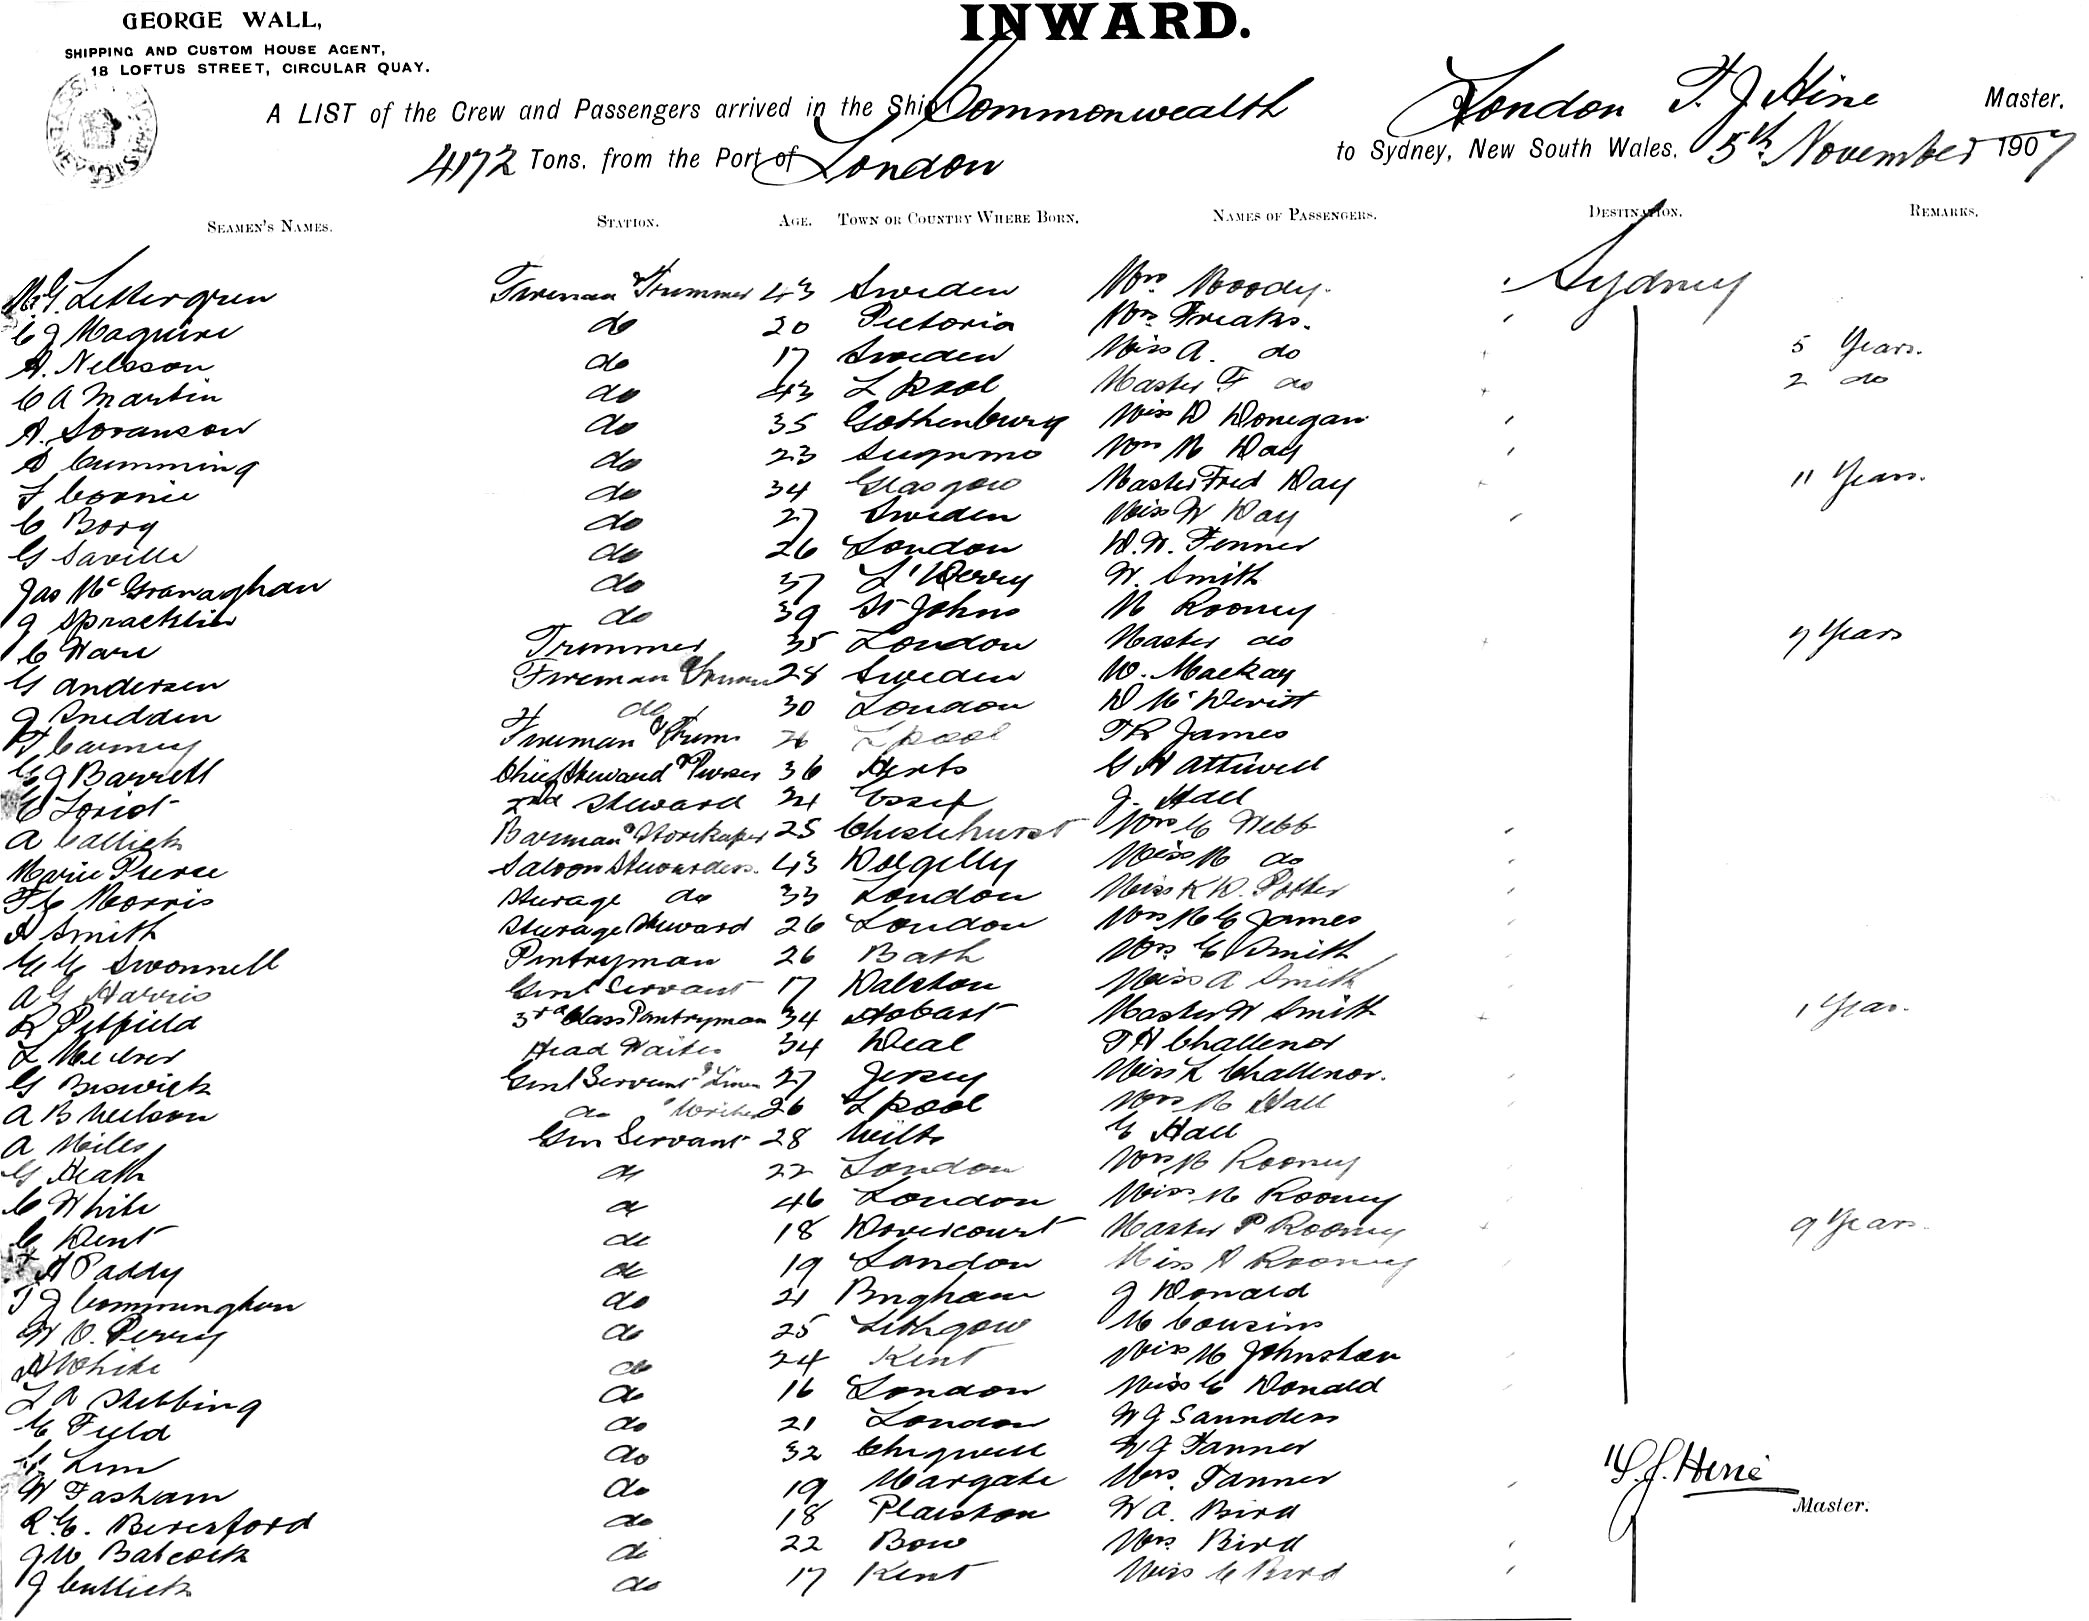 GEORGE WALL,
SHIPPING AND CUSTOM HOUSE AGENT,
18 LOFTUS STREET, CIRCULAR QUAY.
INWARD.
A LIST of the Crew and Passengers arrived in the Ship Commonwealth London T. J Hine Master.
4172 Tons, from the Port of London to Sydney, New South Wales, 5th November 1907
SEAMEN'S NAMES. STATION. AGE. TOWN OR COUNTRY WHERE BORN. NAMES OF PASSENGERS. DESTINATION. REMARKS.
Lettergren Fireman & Trimmer 43 Sweden Mrs Moody. Sydney
C J Maguire do 20 Pretoria Mrs Freaks.
A. Nelsson do 17 Sweden Miss A. do 5 Years.
C A Martin do 43 L'Pool Master F do 2 do
A. Soranson do 35 Gothenburg Miss D Donegan
D Cumming do 23 Mrs M Day
F Corrie do 34 Glasgow Master Fred Day 11 Years.
C Borg do 27 Sweden Miss W Day
G Saville do 26 London W. W. Fenner
Jas McGranaghan do 37 L'Derry W. Smith
J Spracklin do 39 St Johns M Rooney
C Ware Trimmer 35 London Master do 7 Years
G Andersen Fireman 28 Sweden W. Mackay
J Snedden do 30 London D McDevitt
T Carney Fireman & Trim. 26 L'pool T R James
G J Barrett Chief Steward & Purser 36 Herts G H Attwell
C 2nd Steward 24 Essex J. Hall
A Callick Barman & Storekeeper 25 Chislehurst Mrs C Webb
Marie Pierce Saloon Stewardess. 43 Dolgelly Miss M do
F C Morris Steerage do 33 London Miss K D. Potter
A Smith Steerage Steward 26 London Mrs M C James
G G Swonnell Pantryman 26 Bath Mrs C Smith
A G Harris Genl Servant 17 Dalston Miss A Smith
R Petfield 3rd Class Pantryman 34 Hobart Master W Smith 1 Year.
L McIver Head Waiter 34 Deal T H Challenor
G Beswick Genl Servant & Linen 27 Jersey Miss L Challenor.
A B Neilson do & Writer 26 L'pool Mrs M Hall
A Miles Gen Servant 28 Wilts G Hall
G Heath do 22 London Mrs M Rooney
C White do 46 London Miss M Rooney
C Kent do 18 Dovercourt Master P Rooney 9 Years.
H Paddy do 19 London Miss A Rooney
T J Commingham do 21 Bngham J Donald
W V. Perry do 25 Lithgow M Cousins
A White do 24 Kent Miss M Johnston
L A Stebbing do 16 London Miss C Donald
C Field do 21 London W J Saunders
Linn do 32 Chigwell W J Tanner
W Fasham do 19 Margate Mrs. Tanner
T. J. Hine
Master.
R G. Beresford do 18 Plaistow W A. Bird
J W Babcock do 22 Bow Mrs. Bird
J Cullick do 17 Kent Miss C Bird